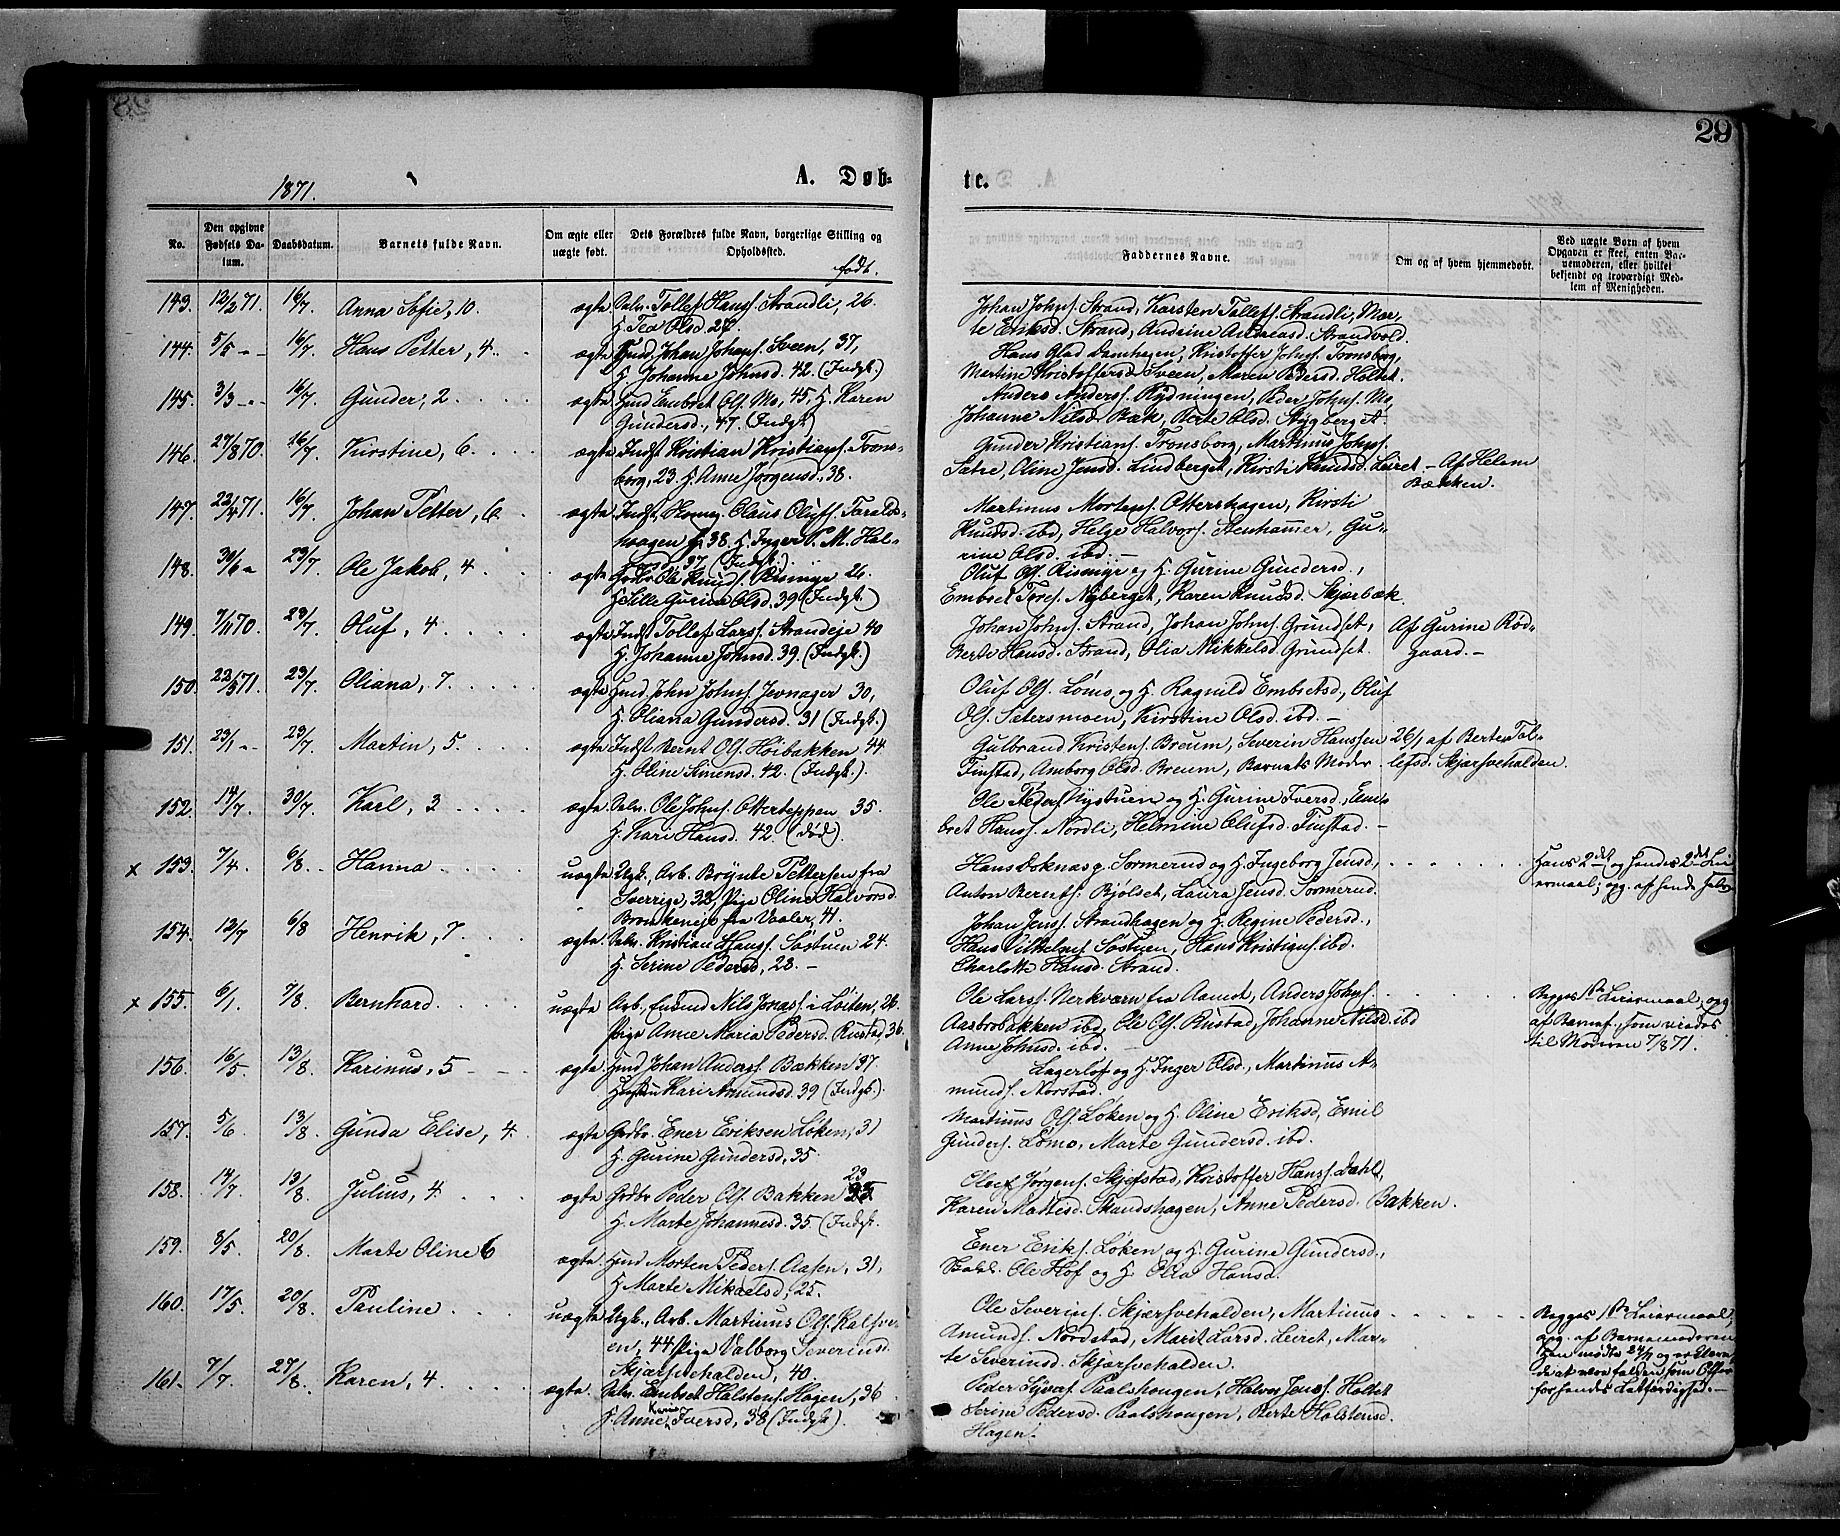 29
1871.
A. Døb-
te.
No.
Den opgivne Fødsels Da-tum.
Daabsdatum.
Barnets fulde Navn.
Om ægte eller uægte født.
Dets Forældres fulde Navn, borgerlige Stilling og Opholdssted.
født.
Faddernes Navne.
Om og af hvem hjemmedøbt.
Ved uægte Børn af hvem Opgaven er skeet, enten Bar-nemoderen, eller hvilket bekjendt og troværdigt Med-lem af Menigheden.
143. 12/2 71. 16/7 Anna Sofie, 10. ægte Selv. Tollef Hanss. Strandli, 26.
H. Tea Olsd. 27.
Johan Johns. Strand, Karsten Tollefs. Strandli, Mar-
te Eriksd. Strand, Andrine Andreasd. Strandvold.
144. 5/5 16/7 Hans Petter, 4. ægte Hmd. Johan Johans. Sveen, 37,
H. Johanne Johnsd. 42. (Indgk.)
Hans Olsd Damhagen, Kristoffer Johns. Tronsborg,
Martine Kristoffersd. Sveen, Maren Pedersd. Holtet.
145. 3/3 16/7. Gunder, 2. ægte Hmd Embret Ols. Mo, 45, H. Karen
Gundersd., 47. (Indgk.)
Anders Anderss. Rydningen, Peder Johns. Mo,
Johanne Nilsd. Bæk, Berte Olsd. Stygberget.
146. 27/8 70. 16/7 Kirstine, 6. ægte Indst Kristian Kristians. Trons-
borg, 23. H. Anne Jørgensd., 38.
Gunder Kristians. Tronsborg, Martinus Johns.
Sætre, Oline Jensd. Lindberget, Kirsti Knudsd. Leiret. - Af Helene
Bækken.
147. 22/4 71. 16/7 Johan Petter, 6. ægte Indst. Claus Olufs. Taralds-
haagen 38. H. Inger P. M. Hal-
37. (Indgk.)
Martinus Mortens. Ottershagen, Kirsti
Knudsd. ibd, Helge Halvors. Stenhammer, Gu-
rine Olsd. ibd. -
148. 30/6 23/7. Ole Jakob, 4. ægte Godbr. Ole Knuds. Rismyr 26.
H. Lille Gurine Olsd. 39 (Indgk.)
Oluf Ols. Rismyr og H. Gurine Gundersd.,
Embret Tores. Nyberget, Karen Knudsd. Skjærbæk.
149. 7/11 70. 23/7. Oluf, 4. ægte Indst Tollef Larss. Strandeje 40
H. Johanne Johnsd. 39. (Indgk.)
Johan Johns. Strand, Johan Johns. Grundset,
Berte Hansd. Strand, Olia Mikkelsd. Grundset.
Af Gurine Rød-
gaard. -
150. 22/5 71. 23/7. Oliana, 7. ægte Hmd. John Johns. Jevnager 30,
H. Oliana Gundersd. 31 (Indgk.)
Oluf Ols. Lømo og H. Ragnild Embretsd., Oluf
Ols. Setersmoen, Kirstine Olsd. ibd. -
151. 23/1 23/7. Martin, 5. ægte Indst Bernt Ols. Høibakken 44
H. Oline Simensd. 42. (Indgk.)
Gulbrand Kristens. Breum, Severin Hanssen
Finstad, Amborg Olsd. Breum, Barnets Moder.
26/1 af Berte Tol-
lefsd. Skjærsvehalden.
152. 14/7 30/7. Karl, 3. ægte Selv. Ole Johns. Otterteppen 35
H. Kari Hansd. 42. (død).
Ole Peders. Nystuen og H. Gurine Iversd., Em-
bret Hanss. Nordli, Helmine Olufsd. Finstad. -
x 153. 7/4. 6/8. Hanna uægte Ugk., Arb. Brynte Pettersen fra
Sverrige, 32, Pige Oline Halvorsd.
Bronkeneje fra Vaaler, 41.
Hans Sormerud og H. Ingeborg Jensd.,
Anton Bernts. Bjølset, Laura Jensd. Sormerud.
Hans 2det og hendes 2det Lei
ermaal; opg. af hende selv.
154. 12/7 6/8 Henrik, 7. ægte. Selv. Kristian Hanss. Søstuen 24.
H. Serine Pedersd, 28. -
Johan Jens. Strandhagen og H. Regine Pedersd.,
Hans Vilhelms. Søstuen, Hans Kristians. ibd.
Charlotte Hansd. Strand.
x 155. 6/1. 7/8. Bernhard. uægte Arb. Nils Jonass. i Løiten, 26.
Pige Anne Maria Pedersd. Rustad, 36.
Ole Larss. Nerkværn fra Aamot, Anders Johns.
Aasbrobakken ibd, Ole Ols. Rustad, Johanne Nilsd. ibd
Anne Johnsd. ibd. -
Begges 1ste Leiermaal, opg.
af Barnef., som viedes
til Moderen 7/8 71.
156. 16/5. 13/8. Karinus, 5 ægte Hmd Johan Anders. Bækken 37
Hustru Kari Amundsd. 39 (Indgk.)
Lagerløf og H. Inger Olsd., Martinus A-
munds. Norstad.
157. 5/6 13/8. Gunda Elise, 4. ægte Godbr. Ener Eriksen Løken, 31
H. Gurine Gundersd., 35
Martinus Ols. Løken og H. Oline Eriksd, Emil
Gunders. Lømo, Marte Gundersd. ibd.
158. 14/7. 13/8. Julius, 4. ægte Godbr Peder Ols. Bakken 23
H. Marte Johannesd. 35 (Indgk.
Oluf Jørgens. Skjefstad, Kristoffer Hanss. Dahl,
Karen Mattesd. Strandshagen, Anne Pedersd. Bakken.
159. 8/5. 20/8. Marte Oline 6 ægte. Hmd Morten Peders. Aasen, 31,
H. Marte Mikkelsd, 25.
Ener Eriks. Løken og H. Gurine Gundersd.,
Ole Hof og H. Olia Hansd.
160. 17/5. 20/8. Pauline uægte Ugk., Arb. Martinus Ols. Kalsve-
en, 44, Pige Valborg Severinsd.
Skjærsvehalden, 40.
Ole Severins. Skjærsvehalden, Martinus
Amunds. Nordstad, Marit Larsd. Leiret, Mar-
te Severinsd. Skjærsvehalden.
Begges 1ste Leiermaal,
opg. af Barnemoderen
Han mødte 24/9 og erklærer
di at være falden som Offer
for hendes Letfærdighed. -
161. 7/7. 27/8. Karen, 4. ægte. Selv. Embret Halstens. Hagen, 36
H. Anne Karine Iversd, 38 (Indgk.).
Peder Syvers. Paalshougen, Halvor Jens. Holtet
Serine Pedersd. Paalshougen, Berte Holstensd.
Hagen.